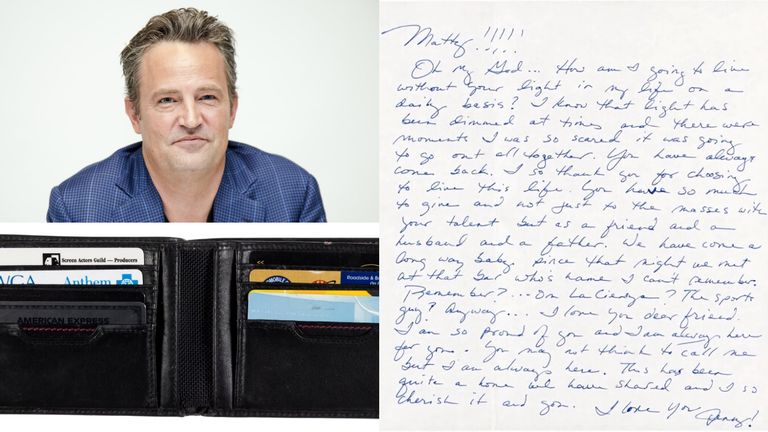 Screen Actors Guild – Producers
Anthem
AMERICAN EXPRESS
Roadside &
Matty!!!!!
Oh my God... How am I going to live
without your light in my life on a
daily basis? I know that light has
been dimmed at times and there were
moments I was so scared it was going
to go out all together. You have always
come back. I so thank you for choosing
to live this life. You have so much
to give and not just to the masses with
your talent but as a friend and a
husband and a father. We have come a
long way baby. Since that night we met
at that bar who's name I can't remember.
Remember?... On La Cienega? The sports
guy? Anyway... I love you dear friend.
I am so proud of you and I am always here
for you. You may not think to call me
but I am always here. This has been
quite a home we have shared and I so
cherish it and you. I love you